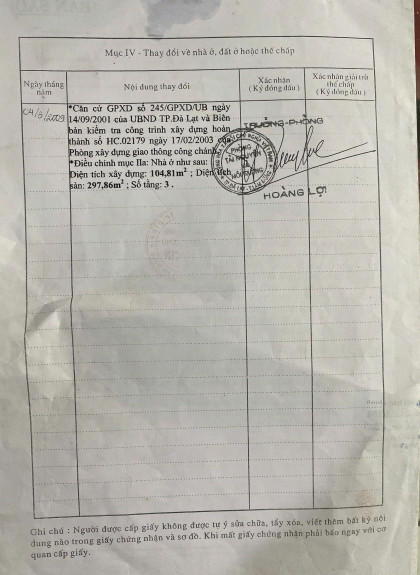 Mục IV - Thay đổi về nhà ở, đất ở hoặc thế chấp
Ngày tháng năm
Nội dung thay đổi
Xác nhận
(Ký đóng dấu)
Xác nhận giải trừ thế chấp
(Ký đóng dấu)
04/6/2009
*Căn cứ GPXD số 245/GPXD/UB ngày
14/09/2001 của UBND TP.Đà Lạt và Biên
bản kiểm tra công trình xây dựng hoàn
thành số HC.02179 ngày 17/02/2003 của
Phòng xây dựng giao thông công chánh.
*Điều chỉnh mục IIa: Nhà ở như sau:
Diện tích xây dựng: 104,81m² ; Diện tích
sàn: 297,86m² ; Số tầng: 3 .
TRƯỞNG PHÒNG
PHÒNG
TÀI NGUYÊN
VÀ
MÔI TRƯỜNG
HOÀNG LỢI
Ghi chú : Người được cấp giấy không được tự ý sửa chữa, tẩy xóa, viết thêm bất kỳ nội
dung nào trong giấy chứng nhận và sơ đồ. Khi mất giấy chứng nhận phải báo ngay với cơ
quan cấp giấy.